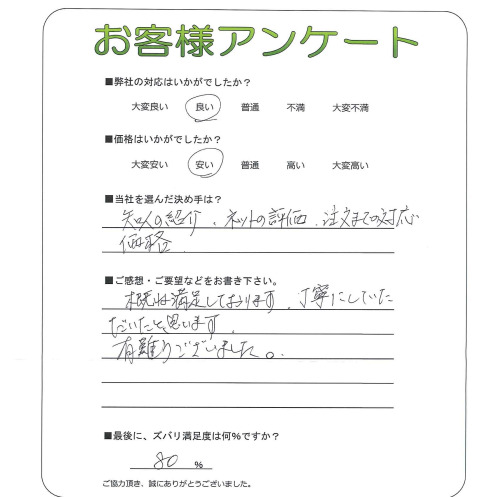 お客様アンケート
■弊社の対応はいかがでしたか？
大変良い　良い　普通　不満　大変不満
■価格はいかがでしたか？
大変安い　安い　普通　高い　大変高い
■当社を選んだ決め手は？
知人の紹介、ネットの評価、注文までの対応
価格
■ご感想・ご要望などをお書き下さい。
概ね満足しております、丁寧にしていた
だいたと思います
有難うございました。
■最後に、ズバリ満足度は何％ですか？
80 ％
ご協力頂き、誠にありがとうございました。